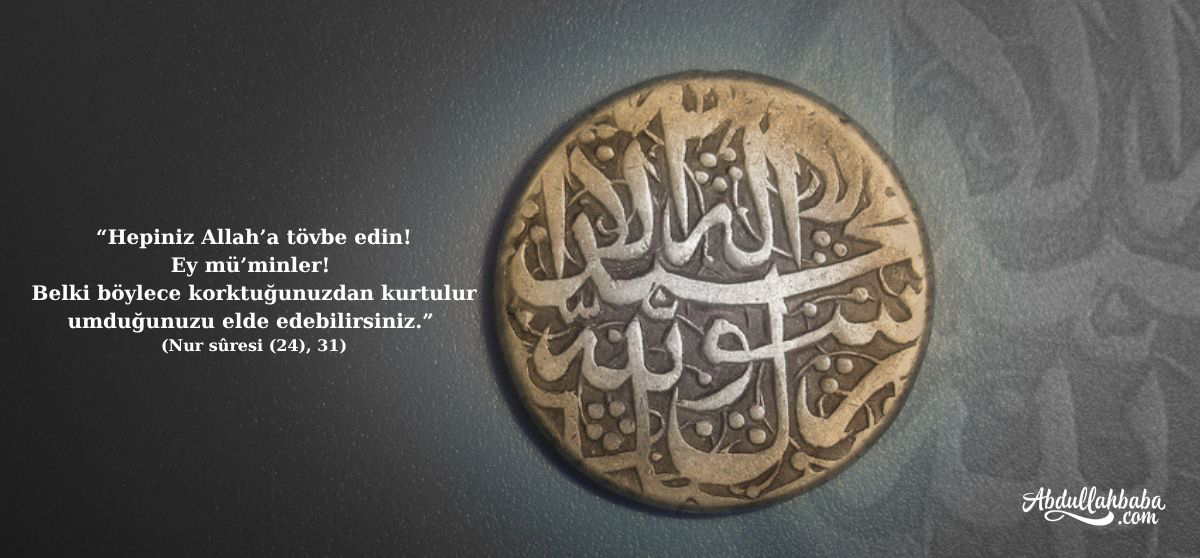 “Hepiniz Allah’a tövbe edin!
Ey mü’minler!
Belki böylece korktuğunuzdan kurtulur
umduğunuzu elde edebilirsiniz.”
(Nur sûresi (24), 31)
لا اله الا الله
محمد
رسول الله
Abdullahbaba
.com